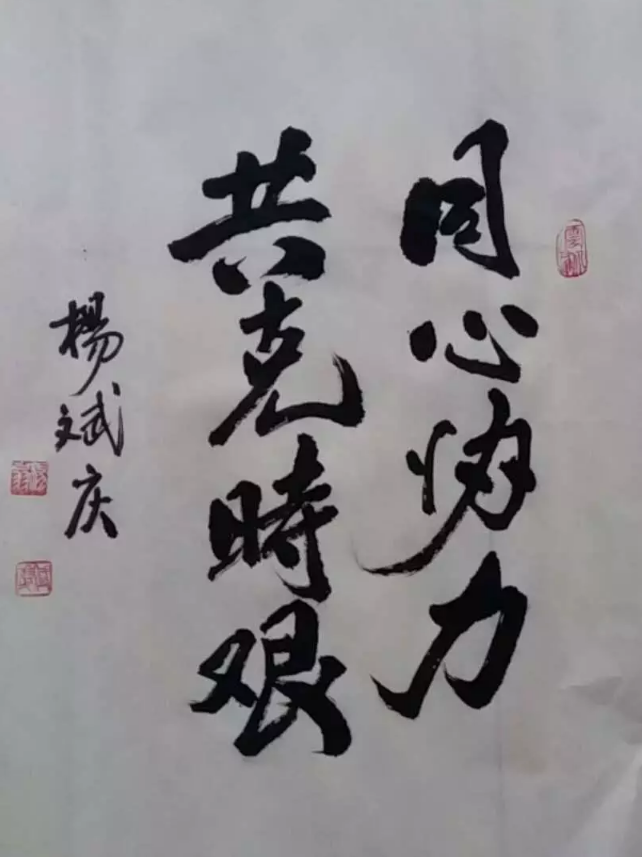 同心协力
共克時艰
楊斌庆